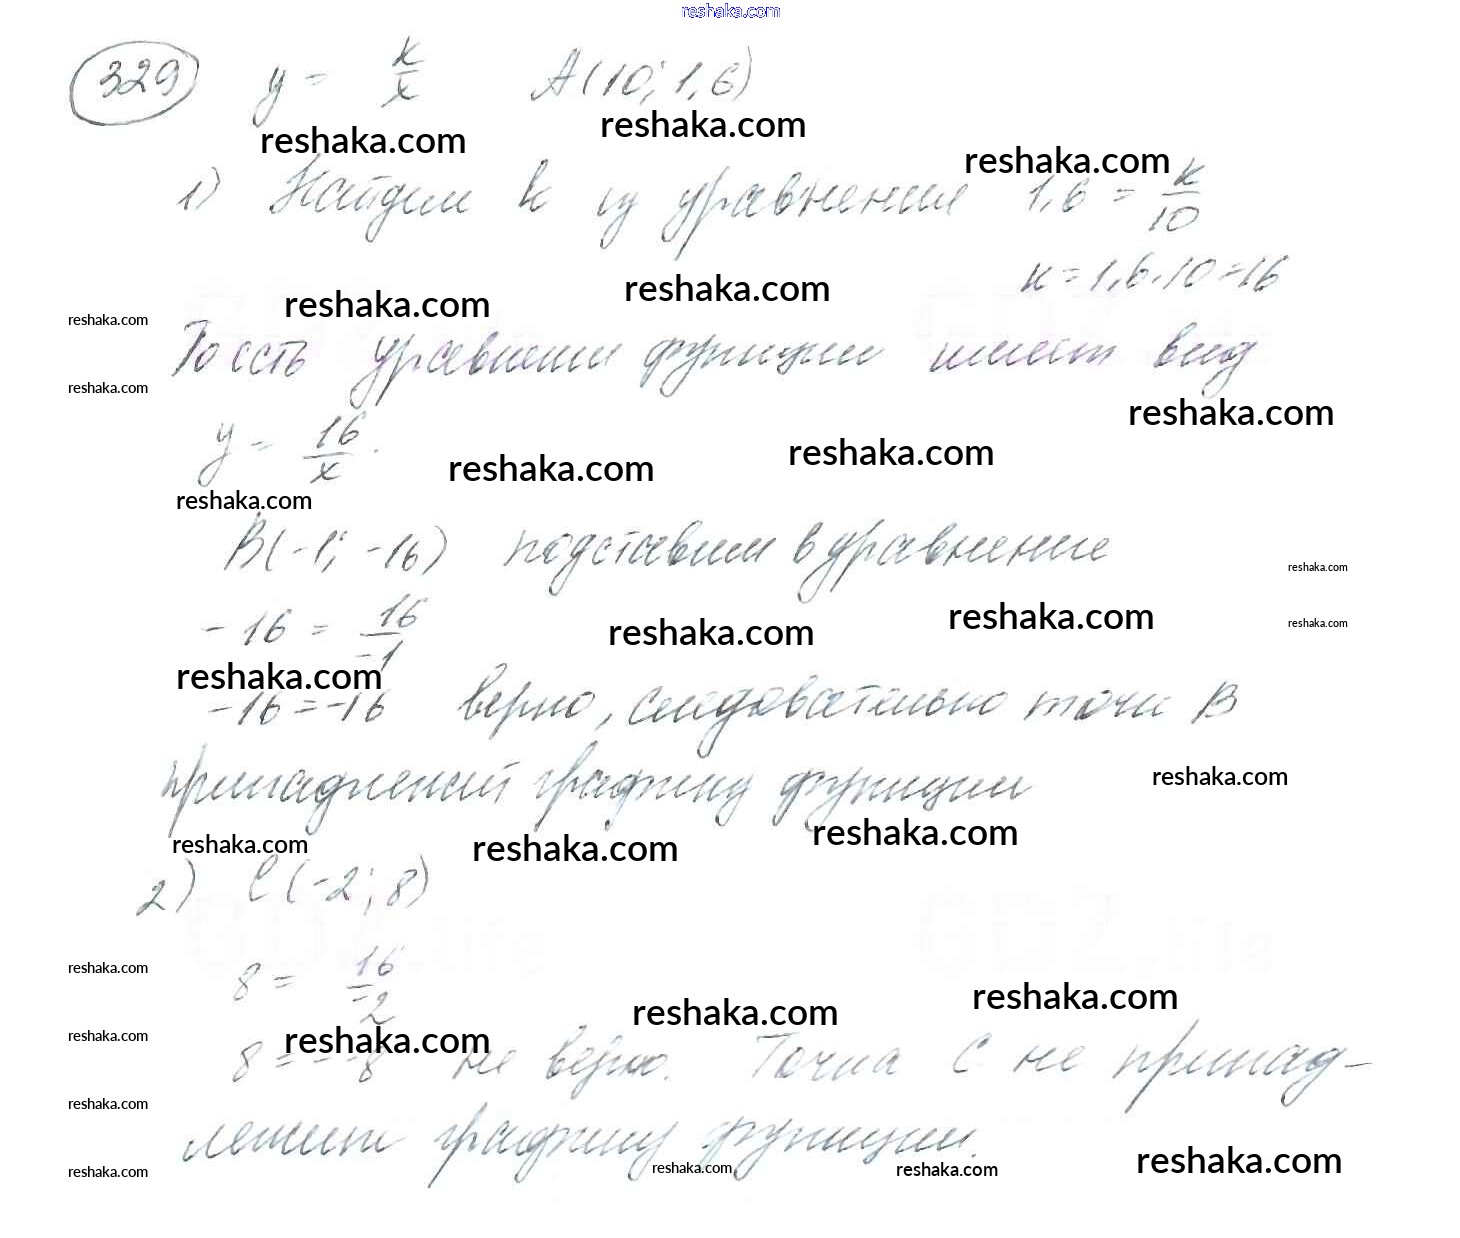 reshaka.com
329 y = k/x A(10; 1,6)
reshaka.com reshaka.com
reshaka.com
1) Найдем k из уравнения 1,6 = k/10
k = 1,6 · 10 = 16
reshaka.com reshaka.com
reshaka.com
То есть уравнение функции имеет вид
reshaka.com
reshaka.com
y = 16/x.
reshaka.com reshaka.com
reshaka.com
B(-1; -16) подставим в уравнение
reshaka.com
-16 = 16/-1
reshaka.com reshaka.com
reshaka.com
reshaka.com
-16 = -16 верно, следовательно точка B
принадлежит графику функции
reshaka.com
reshaka.com reshaka.com reshaka.com
2) C(-2; 8)
8 = 16/-2
reshaka.com
reshaka.com reshaka.com
reshaka.com reshaka.com
8 = -8 не верно. Точка C не принад-
reshaka.com
лежит графику функции.
reshaka.com reshaka.com reshaka.com reshaka.com